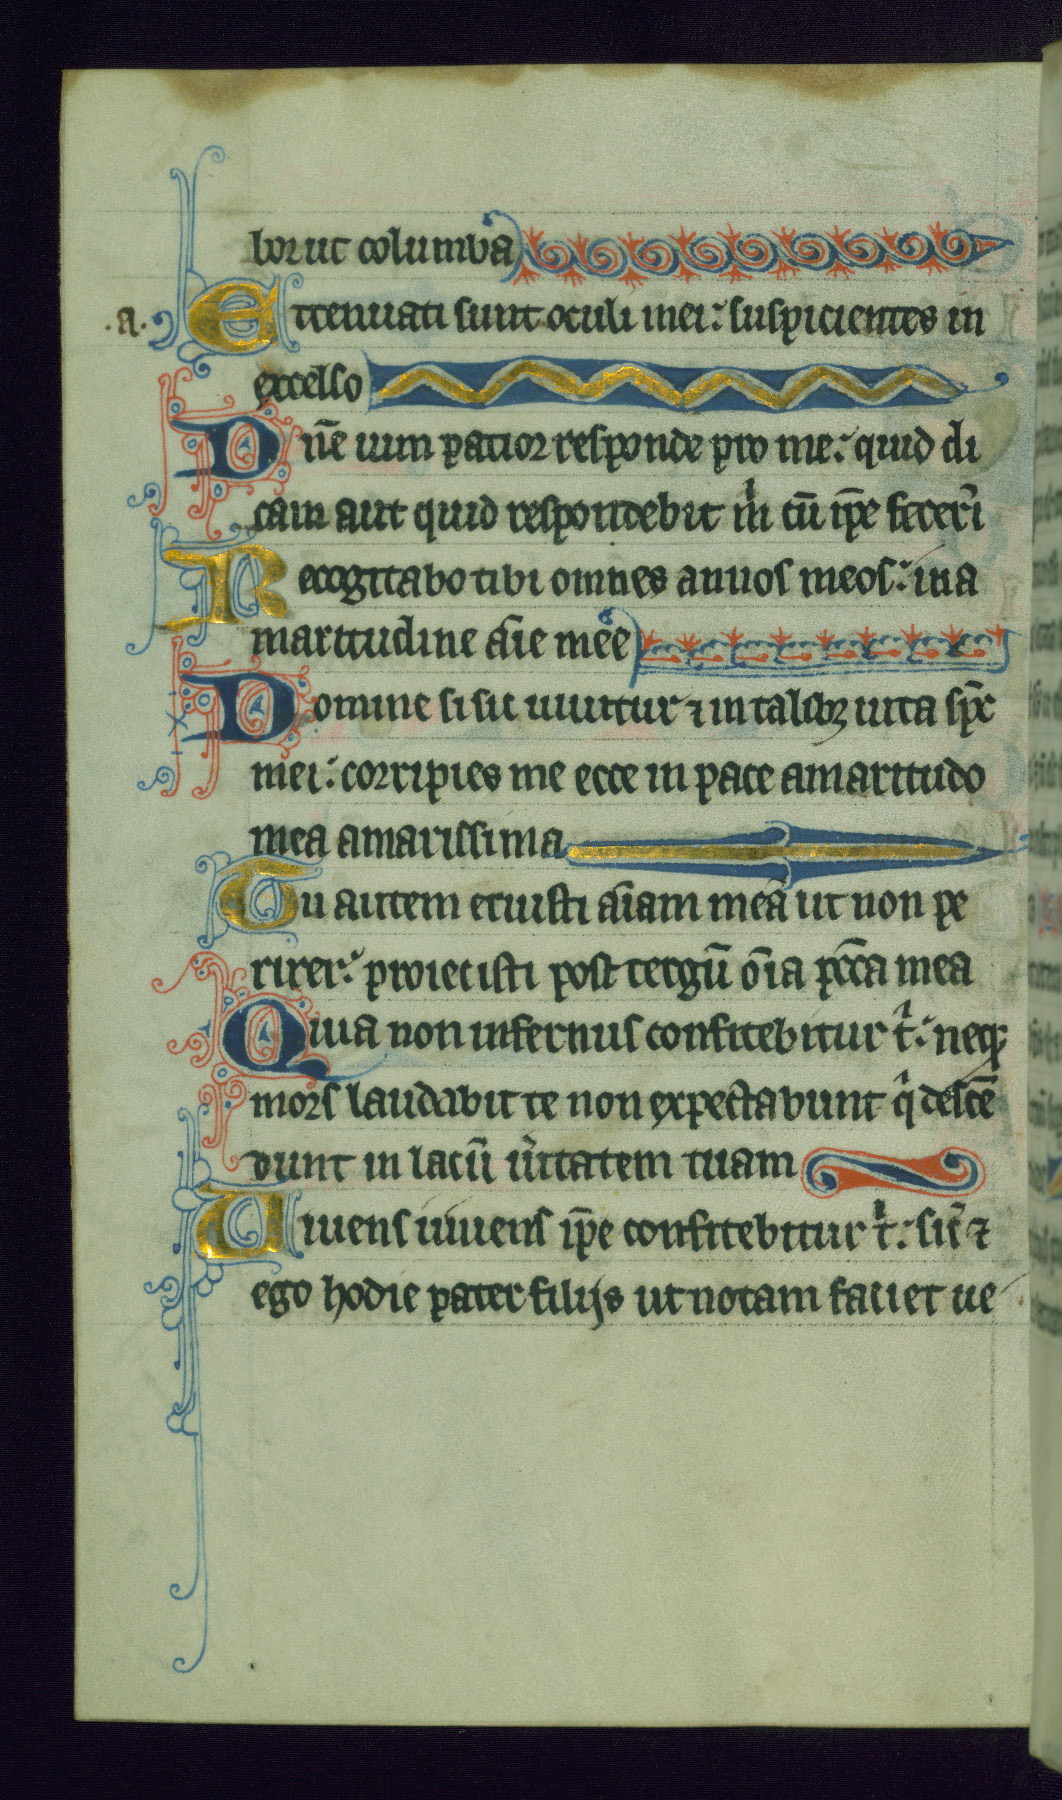 bor ut columba
.a. Ettenuati sunt oculi mei: suspicientes in
excelso
Dñe uim patior responde pro me: quid di
cam aut quid respondebit m̍ cū ip̄e fecerĩ
Recogitabo tibi omnes annos meos: in a
maritudine aīe mee
Domine si sic uiuitur ⁊ in talibꝫ uita sp̄c
mei: corripies me ecce in pace amaritudo
mea amarissima
Tu autem eruisti aīam meā ut non pe
riret: proiecisti post tergū oīa pc̄ca mea
Quia non infernus confitebitur t̍: neqꝫ
mors laudabit te non expectabunt q̍ descē
dunt in lacū ũitatem tuam
Uiuens uiuens ip̄e confitebitur t̍: sic̃ ⁊
ego hodie pater filijs ut notam faciet ue